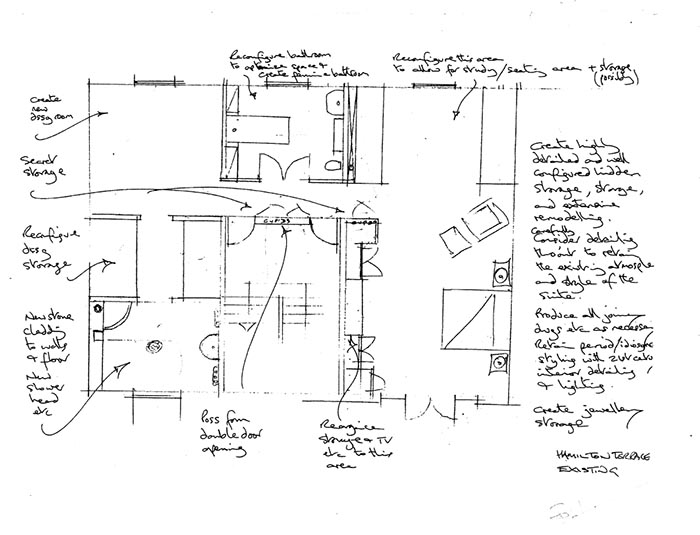 Reconfigure bathroom
to optimise space &
create feminine bathroom
Reconfigure this area
to allow for study/seating area + storage
(possibly)
Create
new
dssg room
Secret
storage
Reconfigure
dssg
storage
New stone
cladding
to walls
& floor
New
shower
head
etc
Poss form
double door
opening
Reorganise
storage & TV
etc to this
area
Create highly
detailed and well
configured hidden
storage, storage,
and extensive
remodelling.
Carefully
Consider detailing
throout to retain
the existing atmosphere
and style of the
suite.
Produce all joinery
dwgs etc as necessary
Retain period/
styling with
interior detailing /
& lighting.
Create jewellery
storage
HAMILTON TERRACE
EXISTING